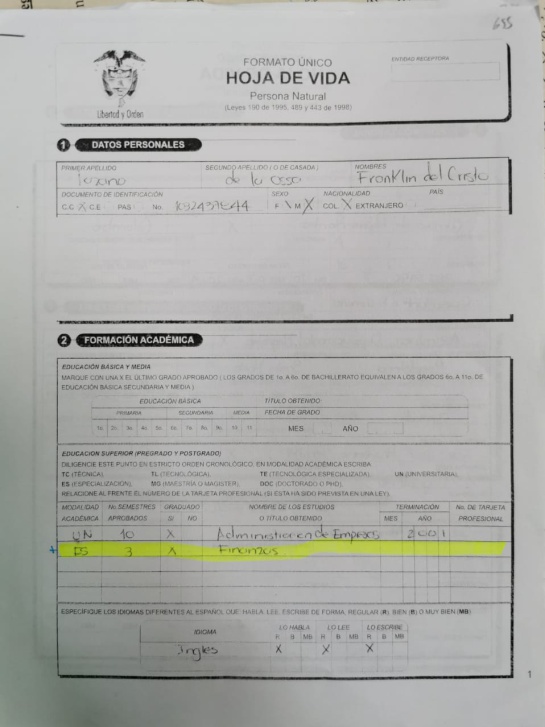 655
FORMATO ÚNICO
HOJA DE VIDA
Persona Natural
(Leyes 190 de 1995, 489 y 443 de 1998)
ENTIDAD RECEPTORA
Libertad y Orden
1 DATOS PERSONALES
PRIMER APELLIDO SEGUNDO APELLIDO ( O DE CASADA ) NOMBRES
Lozano de la Ossa Franklin del Cristo
DOCUMENTO DE IDENTIFICACIÓN SEXO NACIONALIDAD PAÍS
C.C X C.E PAS No. F M X COL. X EXTRANJERO
2 FORMACIÓN ACADÉMICA
EDUCACIÓN BÁSICA Y MEDIA
MARQUE CON UNA X EL ÚLTIMO GRADO APROBADO ( LOS GRADOS DE 1o. A 6o. DE BACHILLERATO EQUIVALEN A LOS GRADOS 6o. A 11o. DE
EDUCACIÓN BÁSICA SECUNDARIA Y MEDIA )
EDUCACIÓN BÁSICA TÍTULO OBTENIDO:
PRIMARIA SECUNDARIA MEDIA FECHA DE GRADO
1o. 2o. 3o. 4o. 5o. 6o. 7o. 8o. 9o. 10 11 MES AÑO
EDUCACIÓN SUPERIOR (PREGRADO Y POSTGRADO)
DILIGENCIE ESTE PUNTO EN ESTRICTO ORDEN CRONOLÓGICO, EN MODALIDAD ACADÉMICA ESCRIBA:
TC (TÉCNICA), TL (TECNOLÓGICA), TE (TECNOLÓGICA ESPECIALIZADA), UN (UNIVERSITARIA),
ES (ESPECIALIZACIÓN), MG (MAESTRÍA O MAGISTER), DOC (DOCTORADO O PHD),
RELACIONE AL FRENTE EL NÚMERO DE LA TARJETA PROFESIONAL (SI ÉSTA HA SIDO PREVISTA EN UNA LEY).
MODALIDAD No.SEMESTRES GRADUADO NOMBRE DE LOS ESTUDIOS TERMINACIÓN No. DE TARJETA
ACADÉMICA APROBADOS SI NO O TÍTULO OBTENIDO MES AÑO PROFESIONAL
UN 10 X Administracion de Empresas 2001
ES 3 X Finanzas
ESPECIFIQUE LOS IDIOMAS DIFERENTES AL ESPAÑOL QUE: HABLA, LEE, ESCRIBE DE FORMA, REGULAR (R), BIEN (B) O MUY BIEN (MB)
IDIOMA LO HABLA LO LEE LO ESCRIBE
R B MB R B MB R B MB
Ingles X X X
1